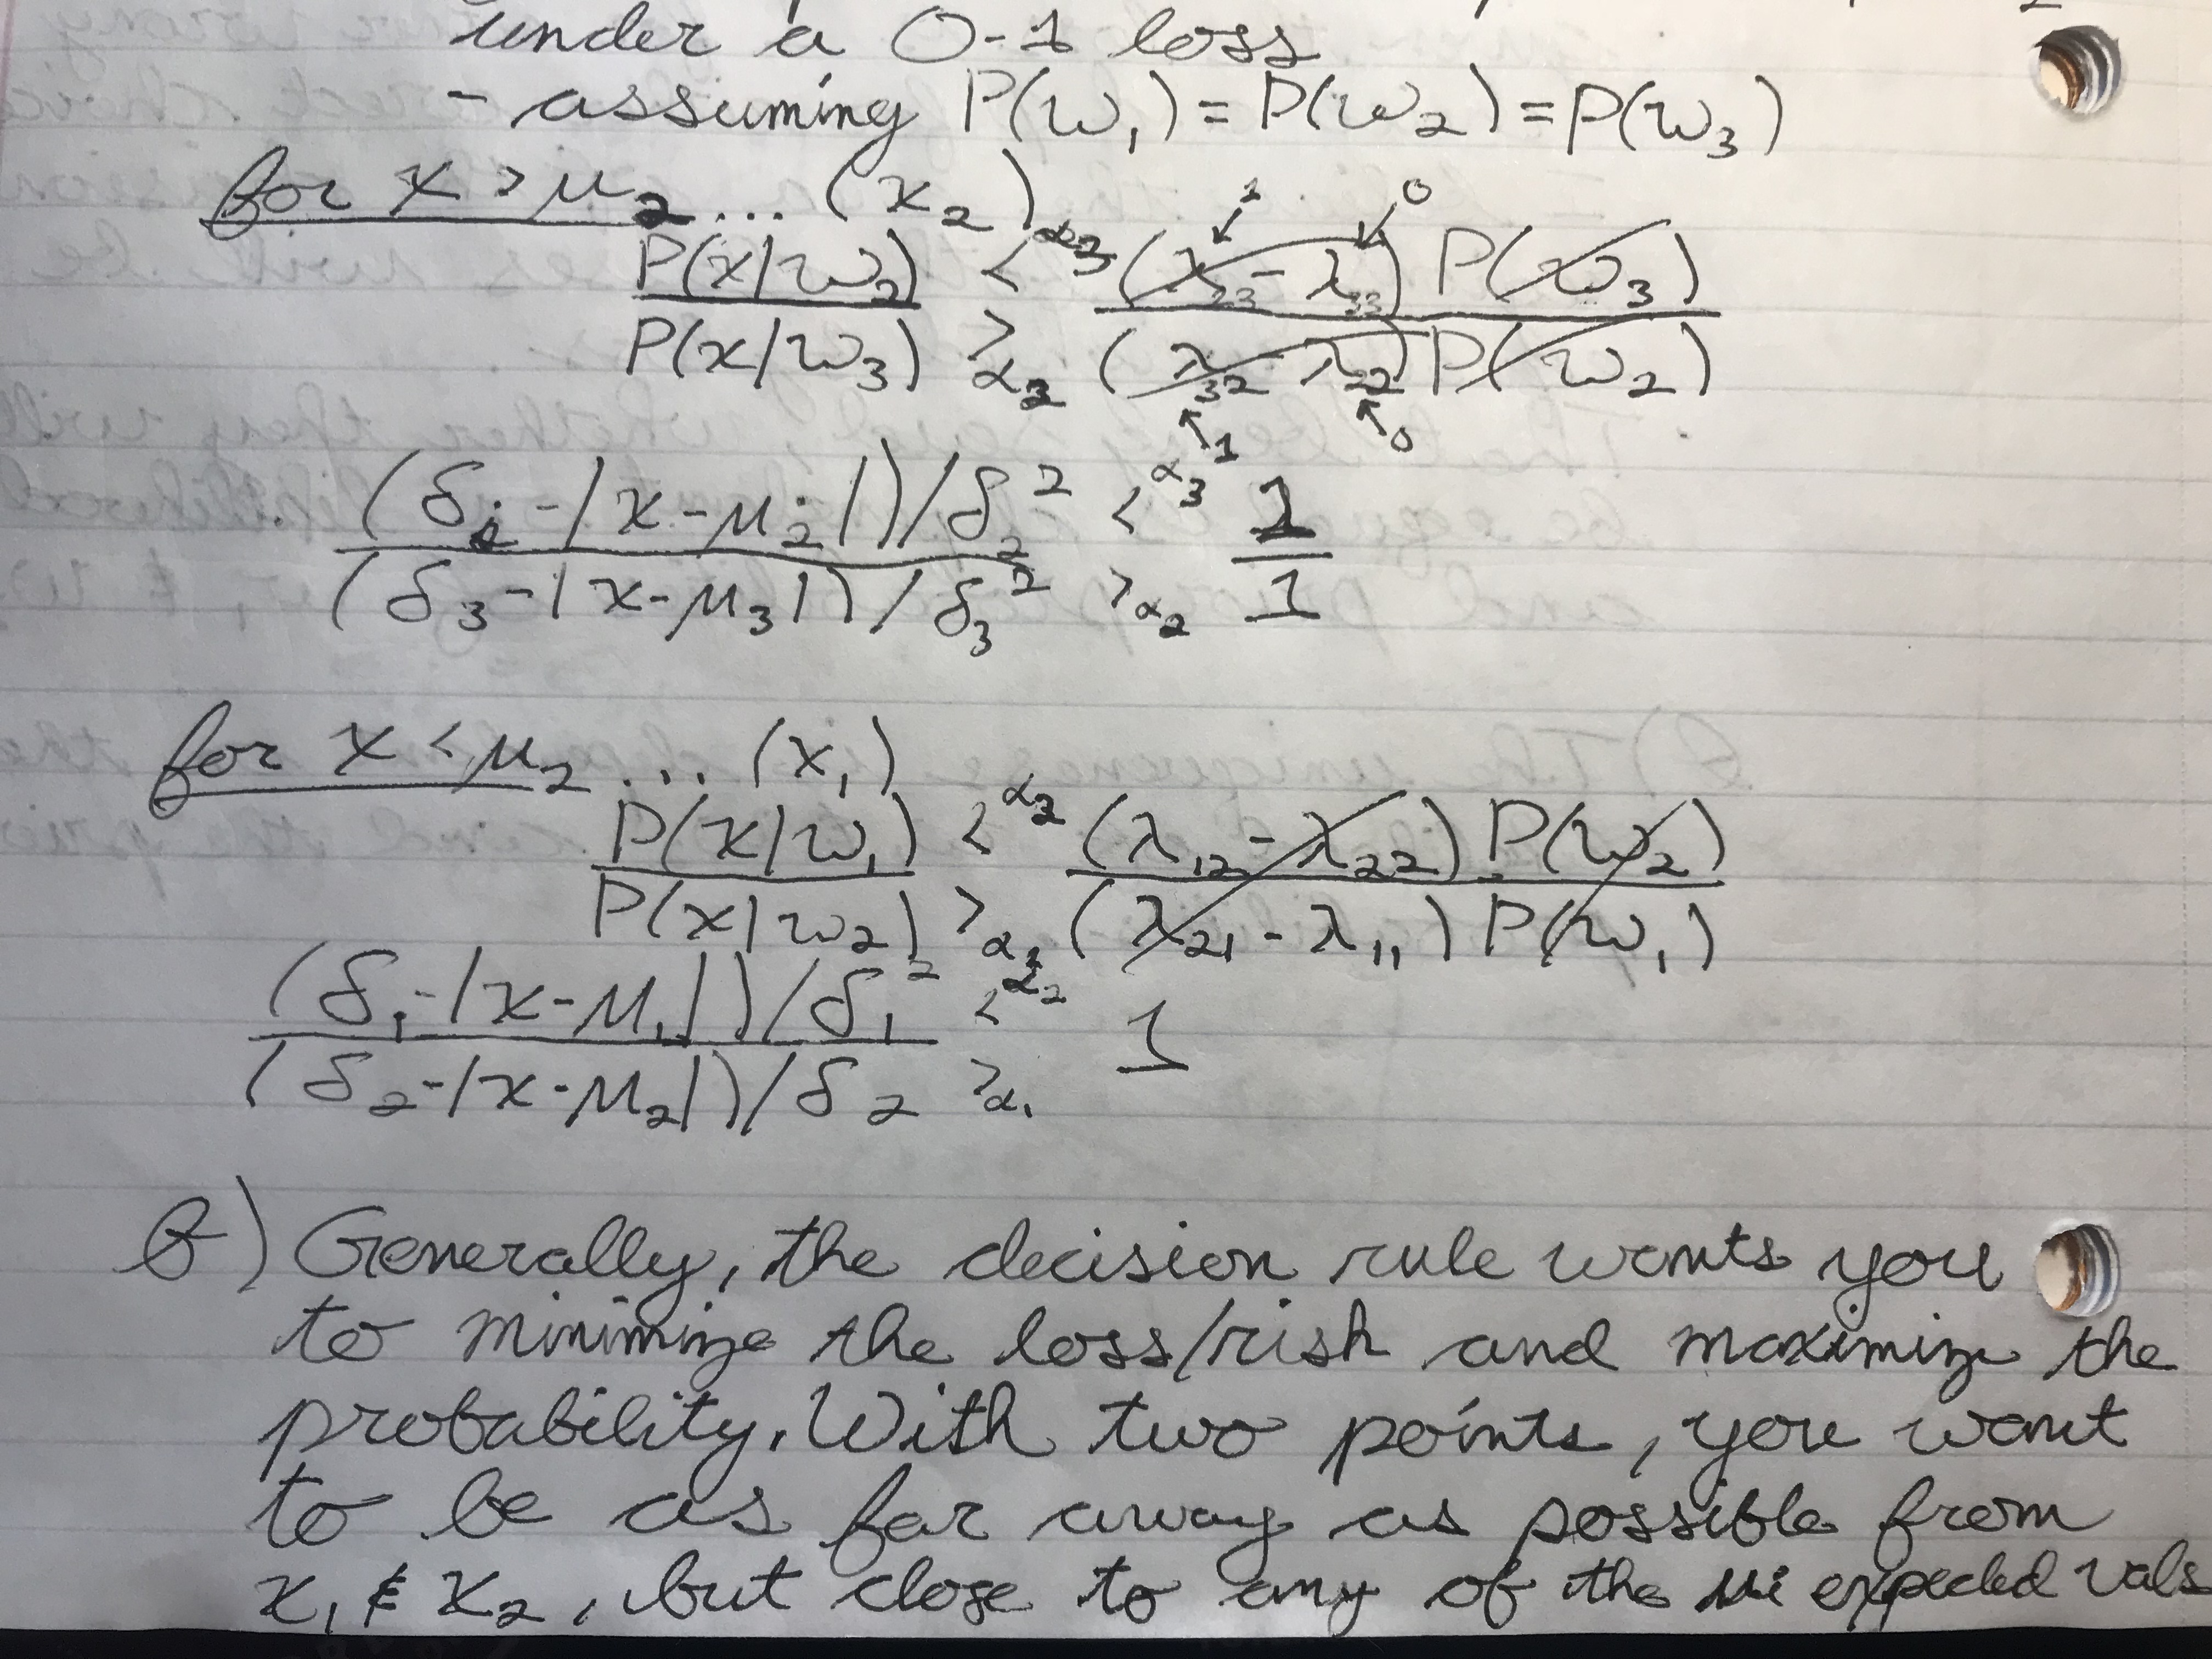 under a 0-1 loss
- assuming P(ω₁) = P(ω₂) = P(ω₃)
for x > μ₂ ... (x₂)
P(x|ω₂) / P(x|ω₃) <α₃ >α₂ (λ₂₃ - λ₃₃) P(ω₃) / (λ₃₂ - λ₂₂) P(ω₂)
1 0
1 0
(δ₂ - |x - μ₂|)/δ₂² / (δ₃ - |x - μ₃|)/δ₃² <α₃ >α₂ 1/1
for x < μ₂ ... (x₁)
P(x|ω₁) / P(x|ω₂) <α₂ >α₁ (λ₁₂ - λ₂₂) P(ω₂) / (λ₂₁ - λ₁₁) P(ω₁)
(δ₁ - |x - μ₁|)/δ₁² / (δ₂ - |x - μ₂|)/δ₂² <α₂ >α₁ 1
B) Generally, the decision rule wants you
to minimize the loss/risk and maximize the
probability. With two points, you want
to be as far away as possible from
x₁ & x₂, but close to any of the μi expected vals